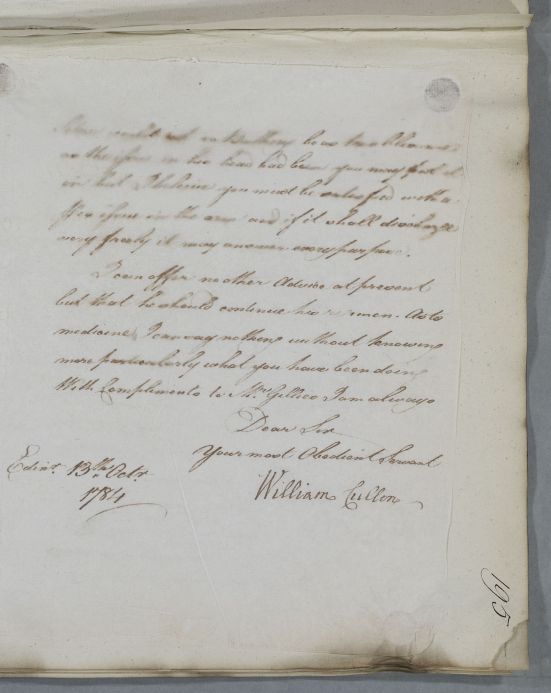 would not be as troublesome
as the issue in his head had been you may put it
in but I believe you must be satisfied with a
Pea issue in the arm and if it shall discharge
very freely it may answer every purpose.
I can offer no other Advice at present
but that he should continue his regimen. As to
medicine I can say nothing without knowing
more particularly what you have been doing
With Compliments to Mrs Gillies I am always
Dear Sir
Your most Obedient Servant
William Cullen
Edinr. 13th. Octr.
1784
195